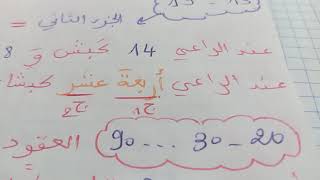 13 - 19
الجزء الثاني =
عند الراعي 14 كبشٍ وَ 8
عند الراعي أربعة عشر كبشا
ج1 ج2
20 - 30 ... 90 العقود